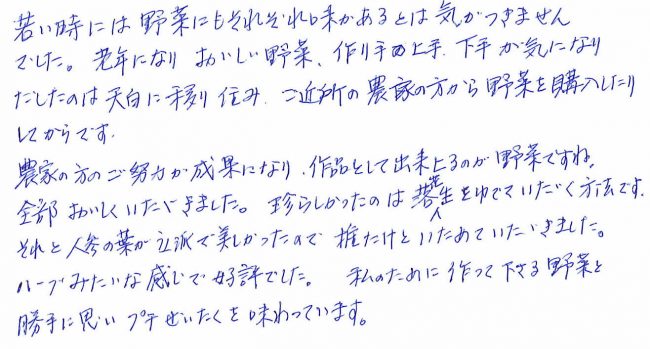 若い時には野菜にもそれぞれ味があるとは気がつきません
でした。老年になりおいしい野菜、作り手の上手、下手が気になり
だしたのは天白に移り住み、ご近所の農家の方から野菜を購入したり
してからです。
農家の方のご努力が成果になり、作品として出来上るのが野菜ですね。
全部おいしくいただきました。珍らしかったのは落花生をゆでていただく方法です。
それと人参の葉が立派で美しかったので椎たけといためていただきました。
ハーブみたいな感じで好評でした。私のために作って下さる野菜と
勝手に思いプチぜいたくを味わっています。